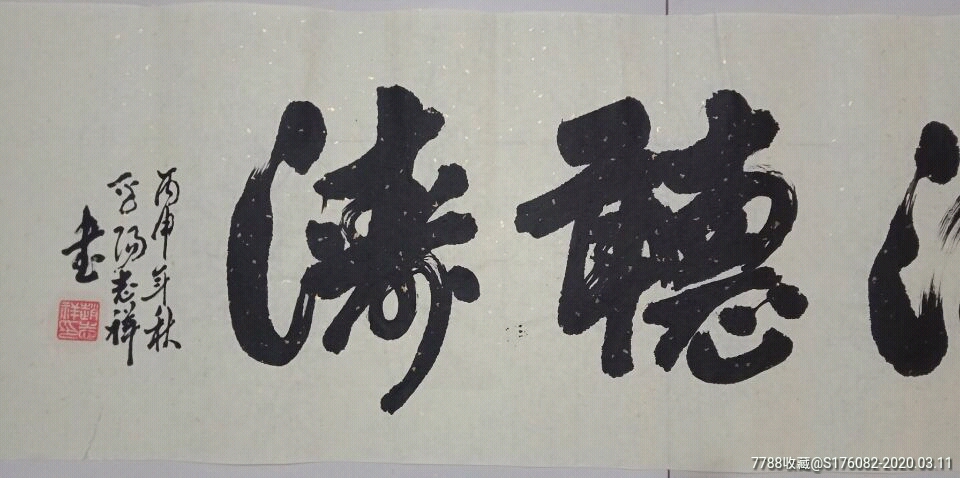 聽濤
丙申年秋
陽志祥
書
趙志祥印
7788收藏@S176082-2020.03.11